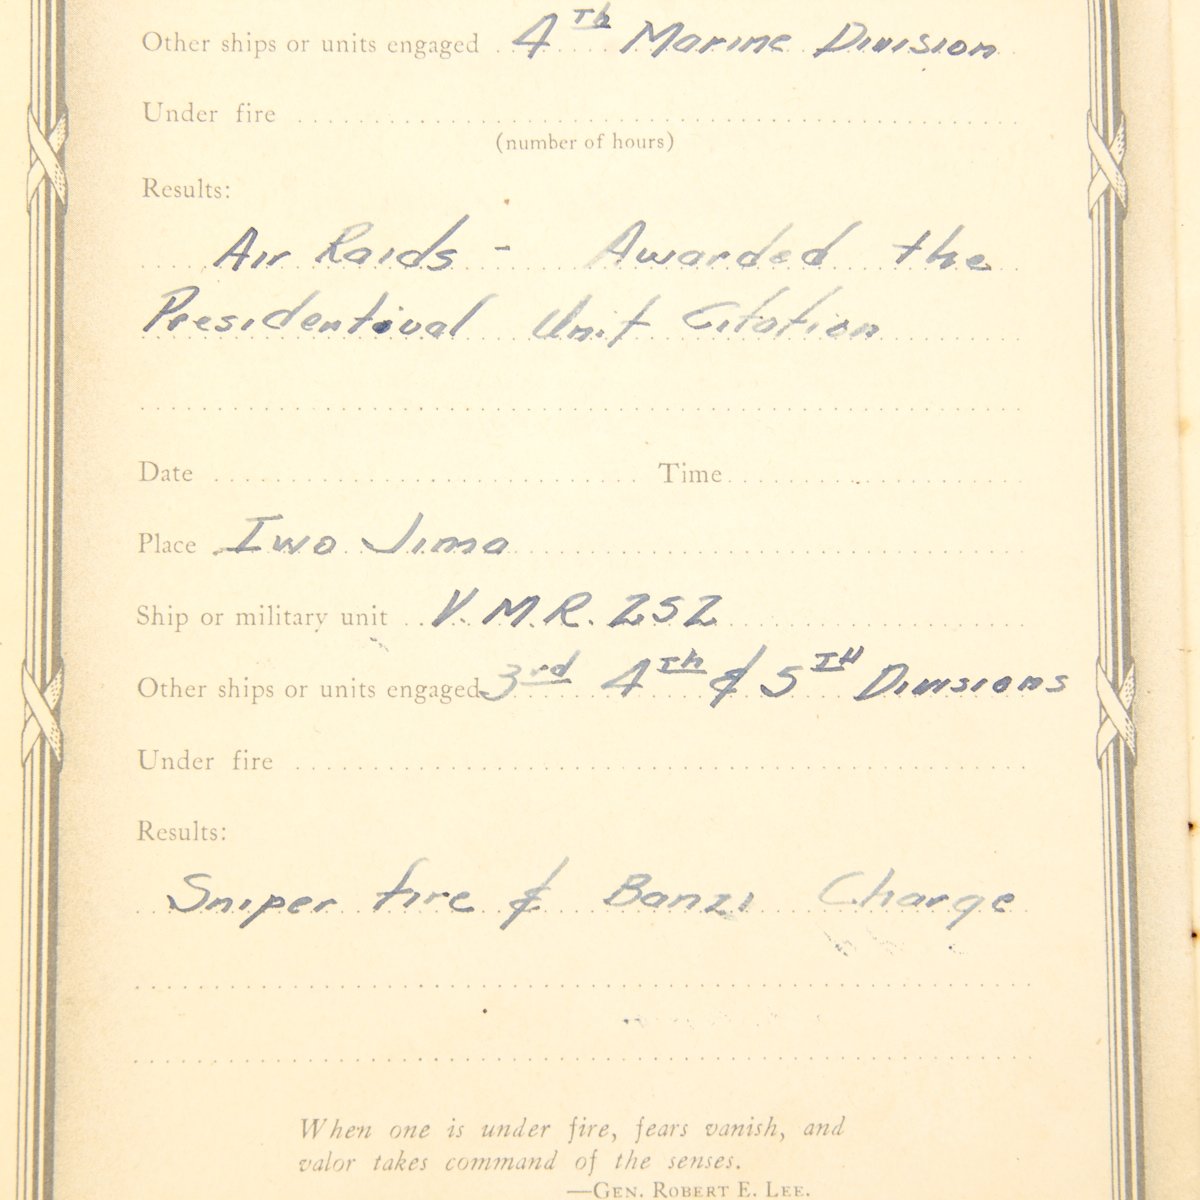 Other ships or units engaged 4Th Marine Division
Under fire
(number of hours)
Results:
Air Raids - Awarded the
Presidentioual Unit Citation
Date Time
Place Iwo Jima
Ship or military unit V.M.R. 252
Other ships or units engaged 3rd 4Th & 5TH Divisions
Under fire
Results:
Sniper fire & Banzi Charge
When one is under fire, fears vanish, and
valor takes command of the senses.
—GEN. ROBERT E. LEE.